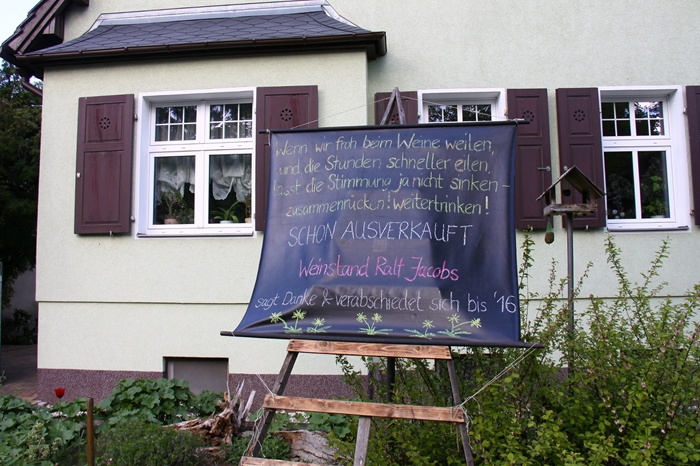 Wenn wir froh beim Weine weilen,
und die Stunden schneller eilen,
lasst die Stimmung ja nicht sinken -
zusammenrücken! weitertrinken!
SCHON AUSVERKAUFT
Weinstand Ralf Jacobs
sagt Danke & verabschiedet sich bis '16